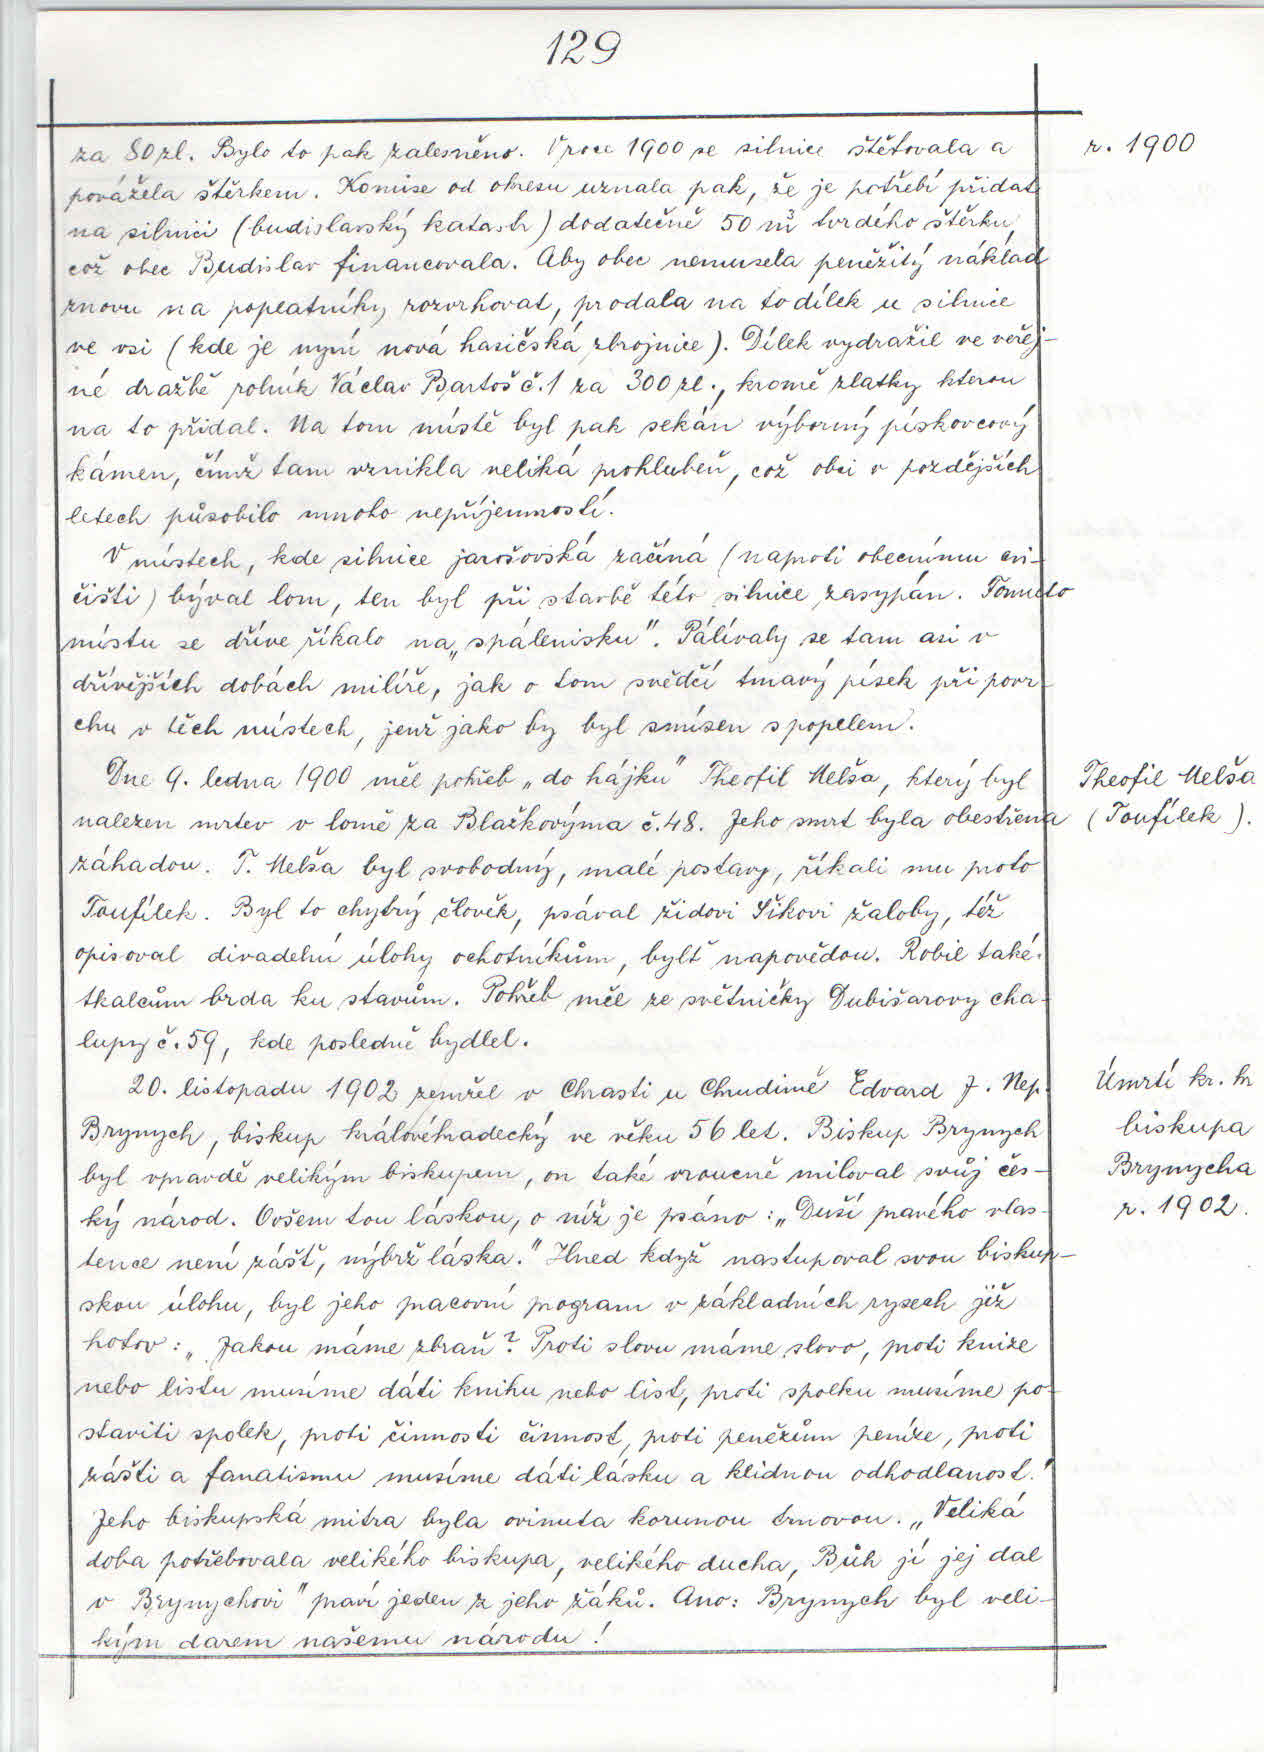 129
za 80 zl. Bylo to pak zalesněno. V roce 1900 se silnice štětovala a
r. 1900
povážela štěrkem. Komise od okresu uznala pak, že je potřebí přidat
na silnici (budislavský katastr) dodatečně 50 m³ tvrdého štěrku,
což obec Budislav financovala. Aby obec nemusela peněžitý náklad
znovu na poplatníky rozvrhovat, prodala na to dílek u silnice
ve vsi (kde je nyní nová hasičská zbrojnice). Dílek vydražil ve veřej-
né dražbě rolník Václav Bartoš č.1 za 300 zl., kromě zlatky kterou
na to přidal. Na tom místě byl pak sekán výborný pískovcový
kámen, čímž tam vznikla veliká prohlubeň, což obci v pozdějších
letech působilo mnoho nepříjemností.
V místech, kde silnice jarošovská začíná (naproti obecnímu cvi-
čišti) býval lom, ten byl při stavbě této silnice zasypán. Tomuto
místu se dříve říkalo na „spálenisku". Pálívaly se tam asi v
dřívějších dobách milíře, jak o tom svědčí tmavý písek při povr-
chu v těch místech, jenž jako by byl smísen s popelem.
Dne 9. ledna 1900 měl pohřeb „do hájku" Theofil Melša, který byl
Theofil Melša
nalezen mrtev v lomě za Blažkovýma č.48. Jeho smrt byla obestřena
(Toufílek).
záhadou. T. Melša byl svobodný, malé postavy, říkali mu proto
Toufílek. Byl to chytrý člověk, psával židovi Šikovi žaloby, též
opisoval divadelní úlohy ochotníkům, bylť napovědou. Robil také
tkalcům brda ku stavům. Pohřeb měl ze světničky Dubišarovy cha-
lupy č.59, kde posledně bydlel.
20. listopadu 1902 zemřel v Chrasti u Chrudimě Edvard J. Nep.
Úmrtí kr. hr
Brynych, biskup královéhradecký ve věku 56 let. Biskup Brynych
biskupa
byl vpravdě velikým biskupem, on také vroucně miloval svůj čes-
Brynycha
ký národ. Ovšem tou láskou, o níž je psáno: „Duší pravého vlas-
r. 1902.
tence není zášť, nýbrž láska." Ihned když nastupoval svou biskup-
skou úlohu, byl jeho pracovní program v základních rysech již
hotov: „Jakou máme zbraň? Proti slovu máme slovo, proti knize
nebo listu musíme dáti knihu nebo list, proti spolku musíme po-
staviti spolek, proti činnosti činnost, proti penězům peníze, proti
zášti a fanatismu musíme dáti lásku a klidnou odhodlanost."
Jeho biskupská mitra byla ovinuta korunou trnovou. „Veliká
doba potřebovala velikého biskupa, velikého ducha, Bůh jí jej dal
v Brynychovi" praví jeden z jeho žáků. Ano: Brynych byl veli-
kým darem našemu národu!